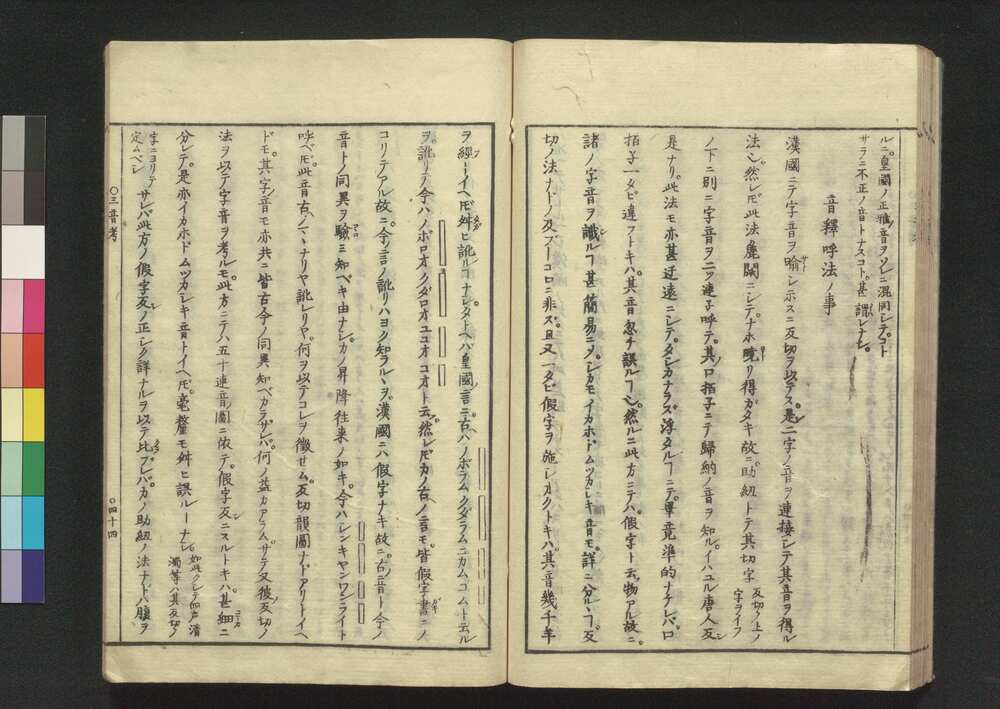 ルニ。皇國ノ正雅音ヲソレニ混同シテ。コト
サラニ不正ノ音トナスコト。甚謬レナシ。
音釋呼法ノ事
漢國ニテ字音ヲ喩シ示スニ反切ヲ以テス。是二字ノ音ヲ連接シテ其音ヲ得ル
法ゾ。然レドモ此法麁闊ニシテ。ナホ曉リ得ガタキ故ニ。助紐トテ其切字 反切ノ上ノ字ヲイフ
ノ下ニ別ニ字音ヲ二ツ連子呼テ。其口拍子ニテ歸納ノ音ヲ知ル。イハユル唐人反
是ナリ。此法モ亦甚迂遠ニシテ。タシカナラズ浮タルヿニテ。畢竟準的ナケレバ。口
拍子一タビ違フトキハ。其音忽チ誤ルヿゾ。然ルニ此方ニテハ。假字ト云物アル故ニ。
諸ノ字音ヲ識ルヿ甚簡易ニメ。シカモイカホドムツカシキ音モ。詳ニ分ルヽヿ。反
切ノ法ナドノ及ブトコロニ非ズ。且又一タビ假字ヲ施シオクトキハ。其音幾千年
ヲ經トイヘドモ。舛ヒ訛ルヿナシ。タトヘバ皇國ノ言ニ。古ヘハノボラムクダラムニカムコムナド云ル
ヲ。訛リテ今ハノボロオクダロオユコオコオト云。然レドモカノ古ノ言モ。皆假字書ニノ
コリテアル故ニ。今ノ言ノ訛リハヨク知ラルヽヲ。漢國ニハ假字ナキ故ニ。古ノ音ト今ノ
音トノ同異ヲ驗ミ知ベキ由ナシ。カノ昇降往来ノ如キ。今ハシンキヤンワンライト
呼ベドモ。此音古ノマヽナリヤ訛レリヤ。何ヲ以テコレヲ徴セム。反切韻圖ナドアリトイヘ
ドモ。其字音モ亦共ニ皆古今ノ同異知ベカラザレバ。何ノ益カアラム。サテ又後反切ノ
法ヲ以テ字音ヲ考ルモ。此方ニテハ五十連音ノ圖ニ依テ。假字反ニスルトキハ。甚細ニ
分レテ。是亦イカホドムツカシキ音トイヘドモ。毫釐モ舛ヒ誤ルヿナシ。如此クシテ四声清濁等ハ其反切ノ
字ニヨリテ定ムベシ サレバ此方ノ假字反ノ正シク詳ナルヲ以テ比ブレバ。カノ助紐ノ法ナドハ。腹ヲ
〇三音考
〇四十四